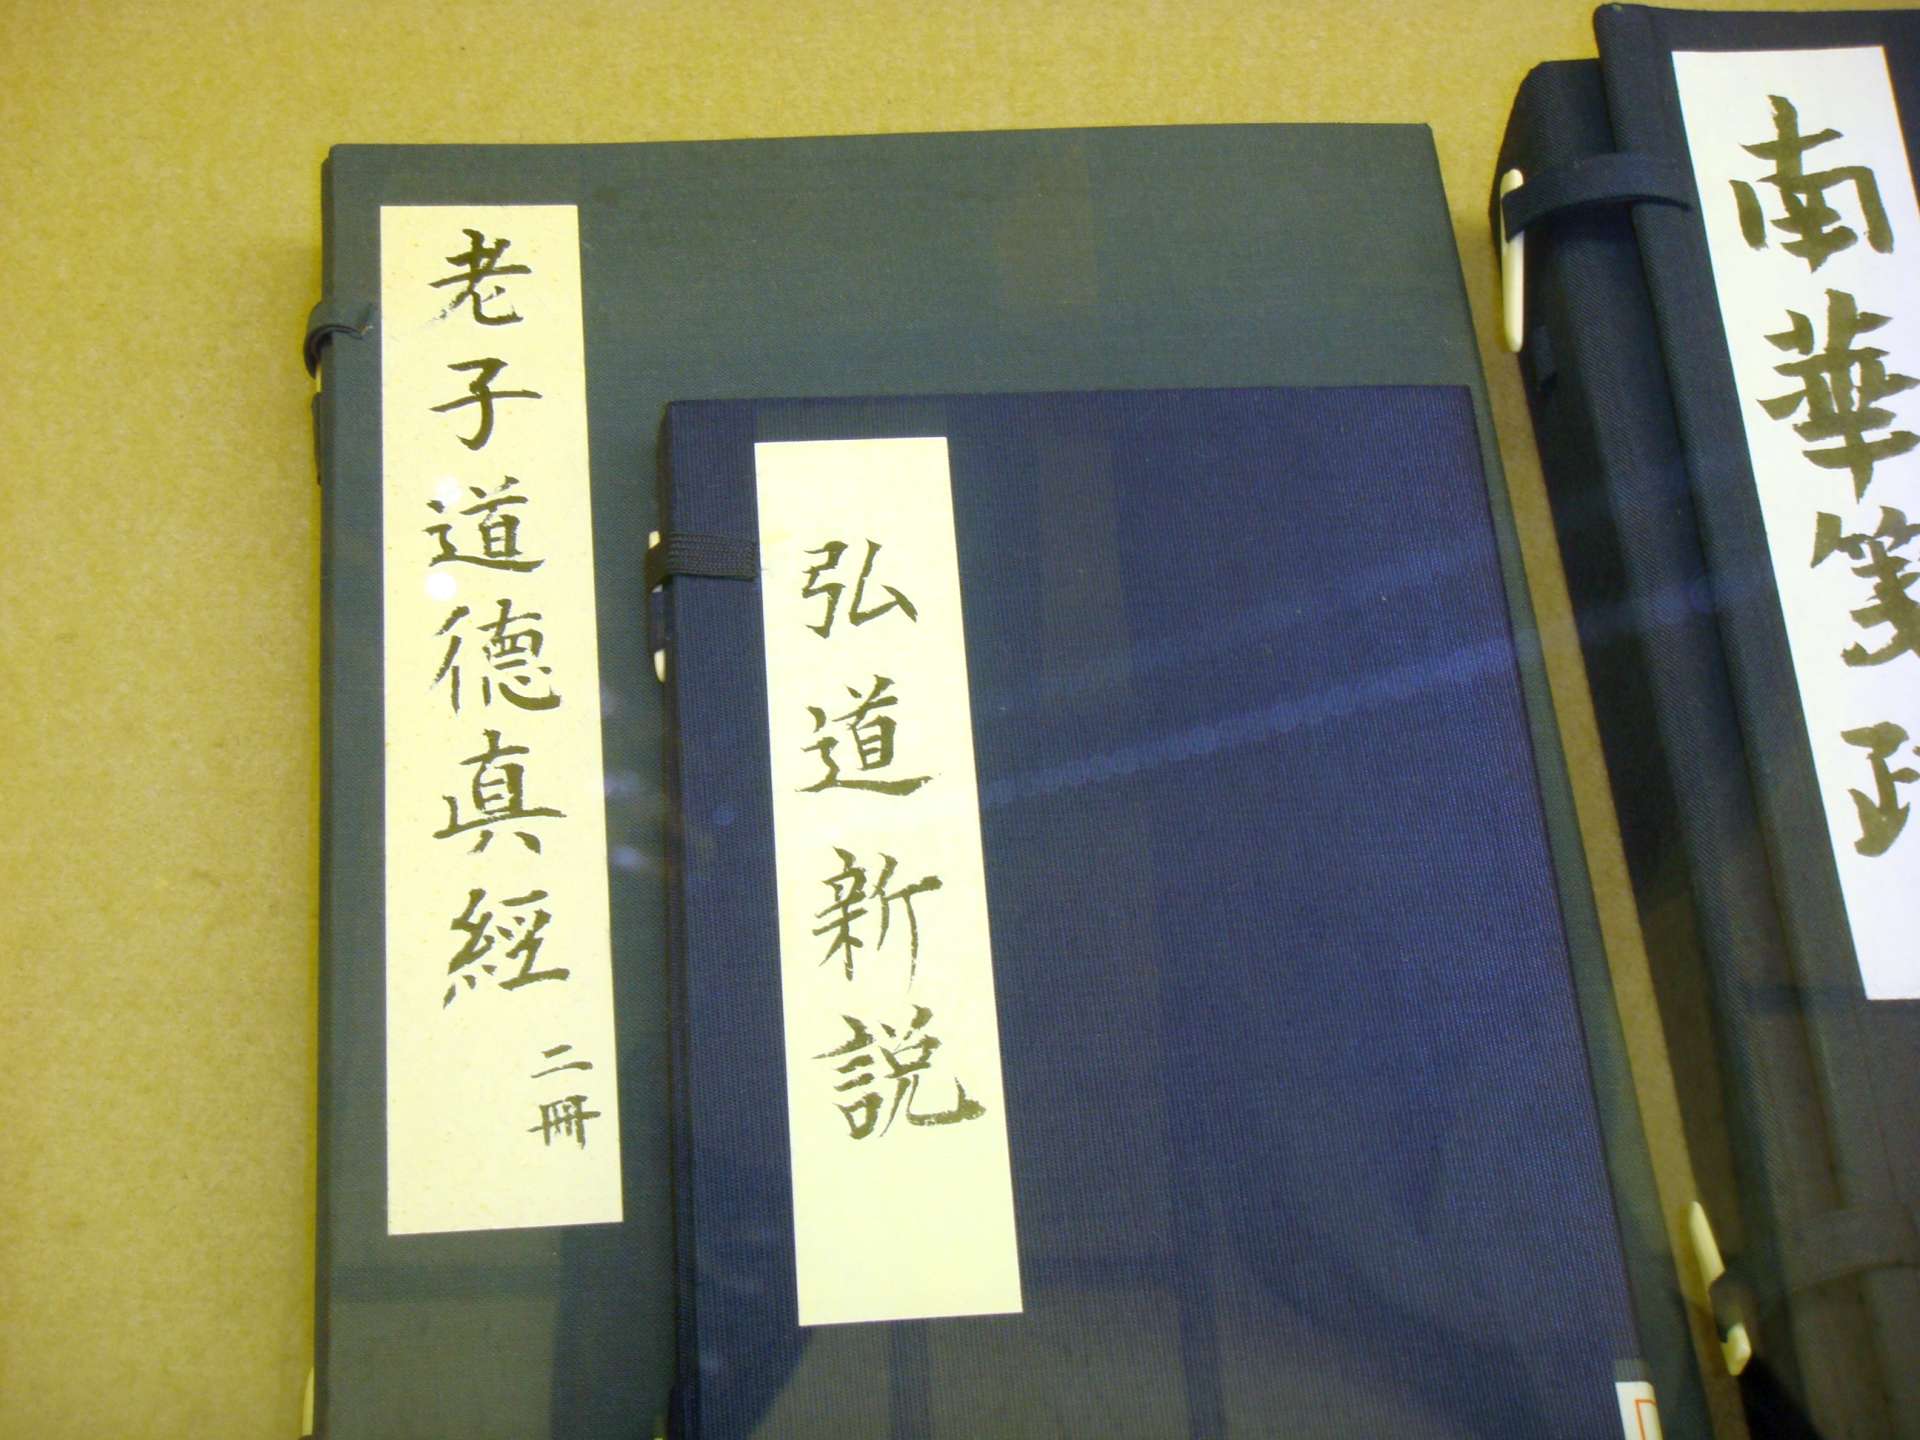 老子道德真經
二冊
弘道新說
南華箋